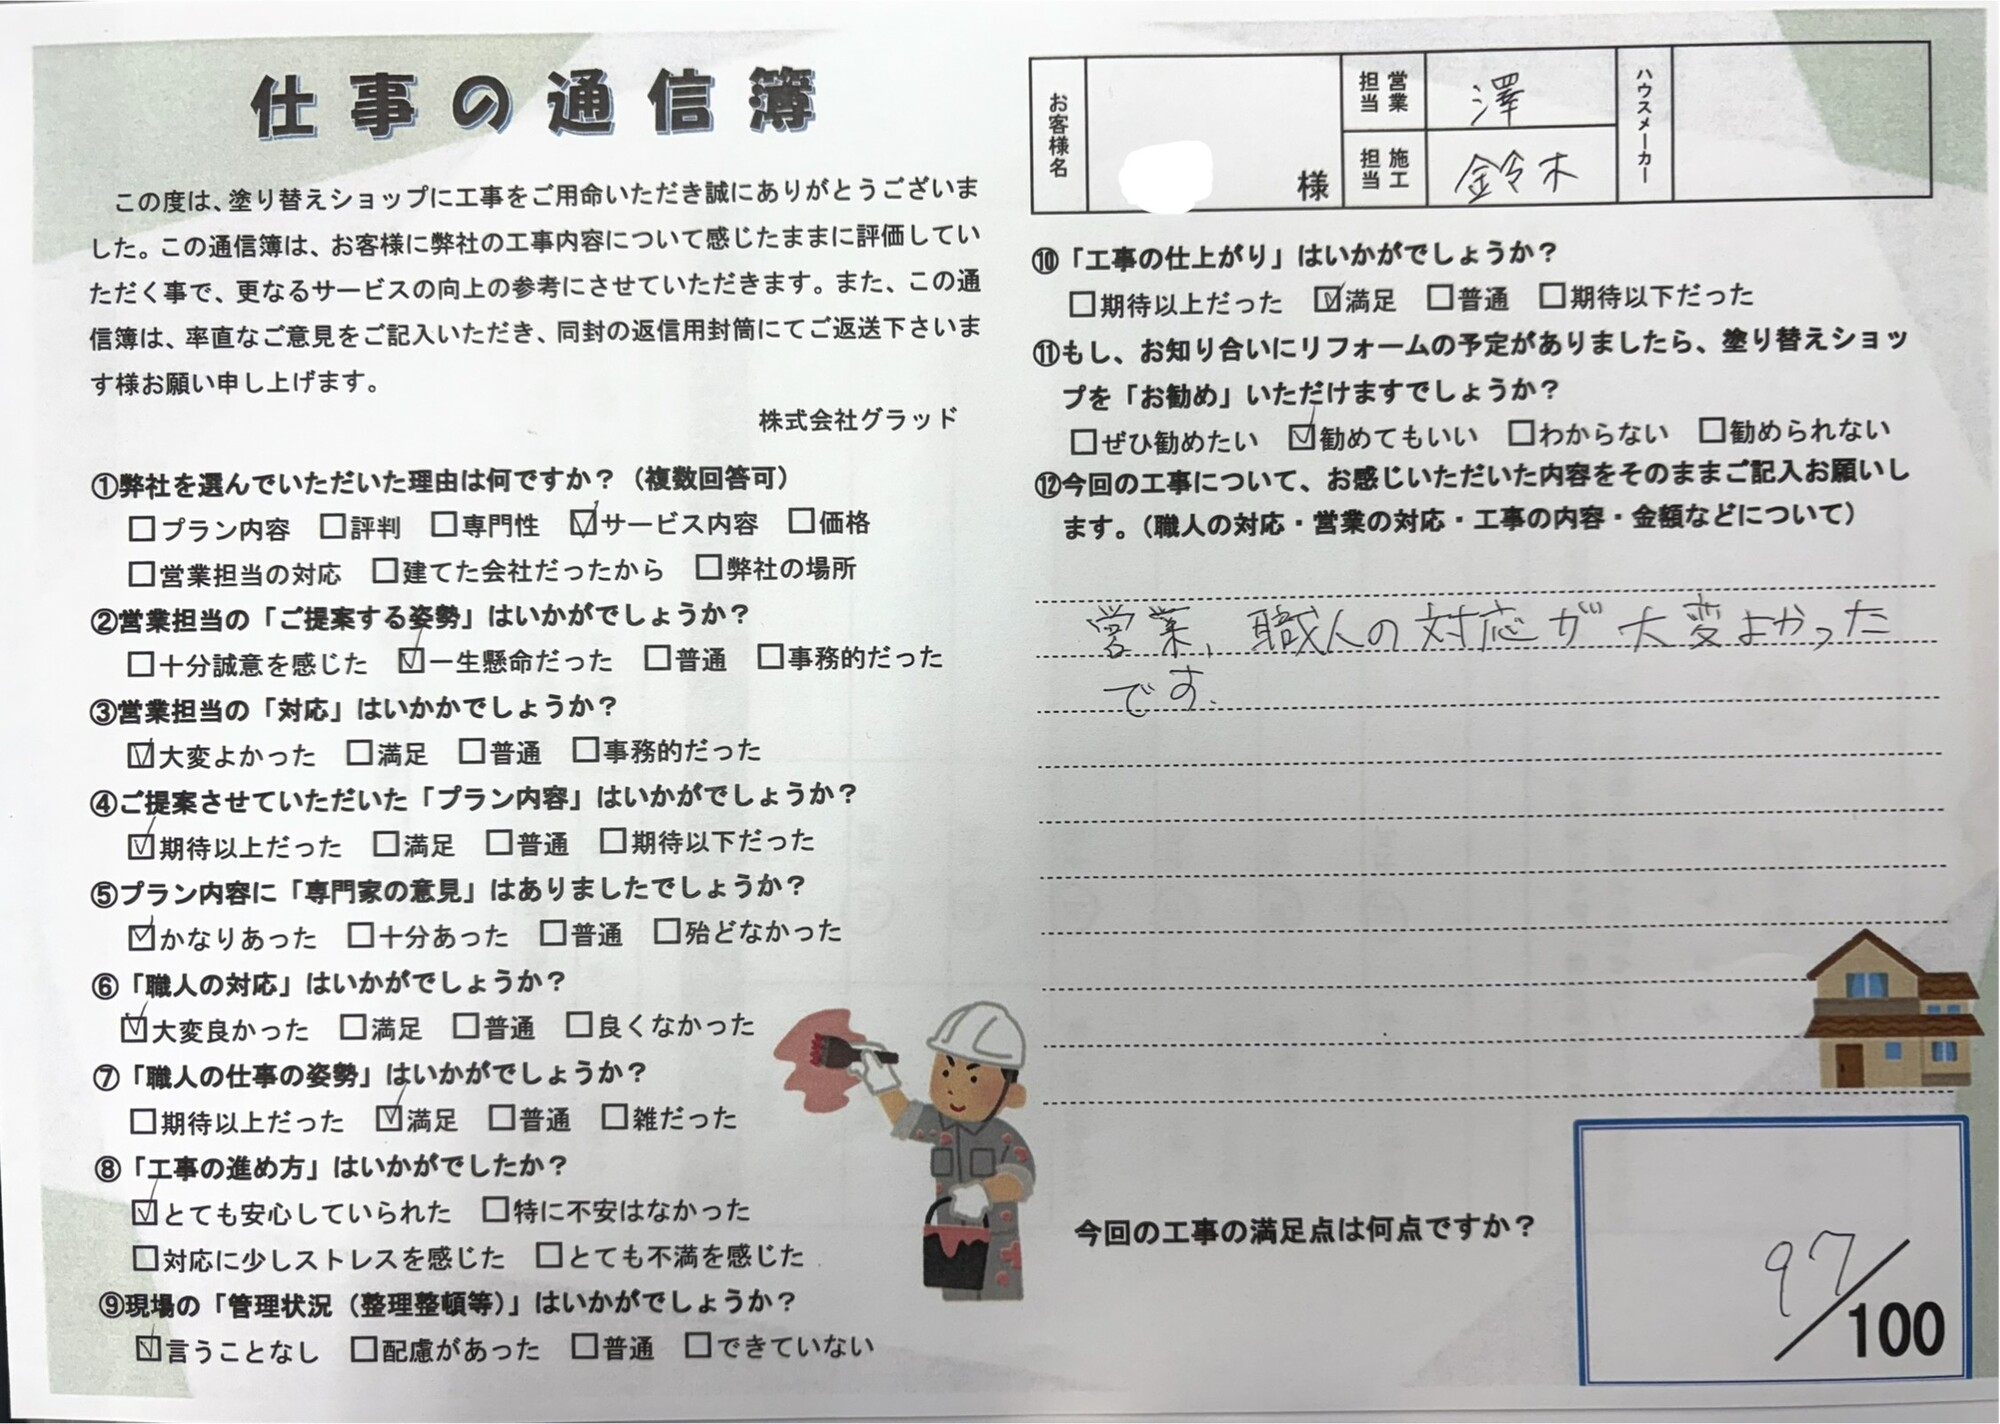 仕事の通信簿
この度は、塗り替えショップに工事をご用命いただき誠にありがとうございま
した。この通信簿は、お客様に弊社の工事内容について感じたままに評価してい
ただく事で、更なるサービスの向上の参考にさせていただきます。また、この通
信簿は、率直なご意見をご記入いただき、同封の返信用封筒にてご返送下さいま
す様お願い申し上げます。
株式会社グラッド
①弊社を選んでいただいた理由は何ですか？（複数回答可）
□プラン内容 □評判 □専門性 ☑サービス内容 □価格
□営業担当の対応 □建てた会社だったから □弊社の場所
②営業担当の「ご提案する姿勢」はいかがでしょうか？
□十分誠意を感じた ☑一生懸命だった □普通 □事務的だった
③営業担当の「対応」はいかかでしょうか？
☑大変よかった □満足 □普通 □事務的だった
④ご提案させていただいた「プラン内容」はいかがでしょうか？
☑期待以上だった □満足 □普通 □期待以下だった
⑤プラン内容に「専門家の意見」はありましたでしょうか？
☑かなりあった □十分あった □普通 □殆どなかった
⑥「職人の対応」はいかがでしょうか？
☑大変良かった □満足 □普通 □良くなかった
⑦「職人の仕事の姿勢」はいかがでしょうか？
□期待以上だった ☑満足 □普通 □雑だった
⑧「工事の進め方」はいかがでしたか？
☑とても安心していられた □特に不安はなかった
□対応に少しストレスを感じた □とても不満を感じた
⑨現場の「管理状況（整理整頓等）」はいかがでしょうか？
☑言うことなし □配慮があった □普通 □できていない
お客様名 様
営業担当 澤
施工担当 鈴木
ハウスメーカー
⑩「工事の仕上がり」はいかがでしょうか？
□期待以上だった ☑満足 □普通 □期待以下だった
⑪もし、お知り合いにリフォームの予定がありましたら、塗り替えショッ
プを「お勧め」いただけますでしょうか？
□ぜひ勧めたい ☑勧めてもいい □わからない □勧められない
⑫今回の工事について、お感じいただいた内容をそのままご記入お願いし
ます。（職人の対応・営業の対応・工事の内容・金額などについて）
営業、職人の対応が大変よかった
です.
今回の工事の満足点は何点ですか？
97/100